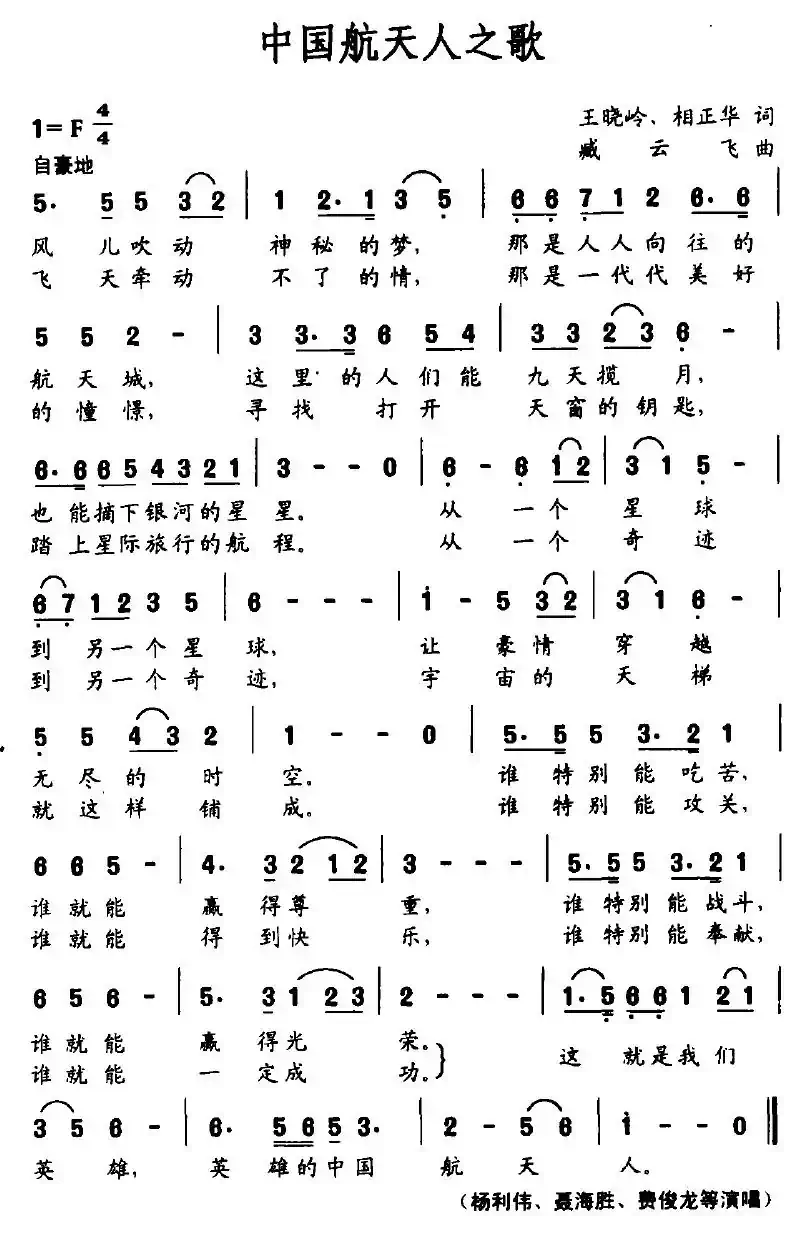 中国航天人之歌
1=F 4/4
王晓岭、相正华 词
自豪地
臧云飞 曲
5· 5 5 3 2 | 1 2· 1 3 5 | 6 6 7 1 2 6· 6 |
风 儿吹动 神秘的梦, 那是人人向往的
飞 天牵动 不了的情, 那是一代代美好
5 5 2 - | 3 3· 3 6 5 4 | 3 3 2 3 6 - |
航天城, 这里的人们能 九天揽 月,
的憧憬, 寻找 打开 天窗的钥匙,
6· 6 6 5 4 3 2 1 | 3 - - 0 | 6 - 6 1 2 | 3 1 5 - |
也能摘下银河的星 星。 从 一个 星 球
踏上星际旅行的航 程。 从 一个 奇 迹
6 7 1 2 3 5 | 6 - - - | i - 5 3 2 | 3 1 6 - |
到 另一个星 球, 让 豪情 穿 越
到 另一个奇 迹, 宇 宙的 天 梯
5 5 4 3 2 | 1 - - 0 | 5· 5 5 3· 2 1 |
无尽的 时 空。 谁 特别能吃苦,
就这样 铺 成。 谁 特别能攻关,
6 6 5 - | 4· 3 2 1 2 | 3 - - - | 5· 5 5 3· 2 1 |
谁就能 赢 得尊 重, 谁特别能战斗,
谁就能 得 到快 乐, 谁特别能奉献,
6 5 6 - | 5· 3 1 2 3 | 2 - - - | 1· 5 6 6 1 2 1 |
谁就能 赢 得光 荣。 这 就是我们
谁就能 一 定成 功。
3 5 6 - | 6· 5 6 5 3· | 2 - 5 6 | i - - 0 ‖
英 雄, 英 雄的中国 航 天 人。
(杨利伟、聂海胜、费俊龙等演唱)